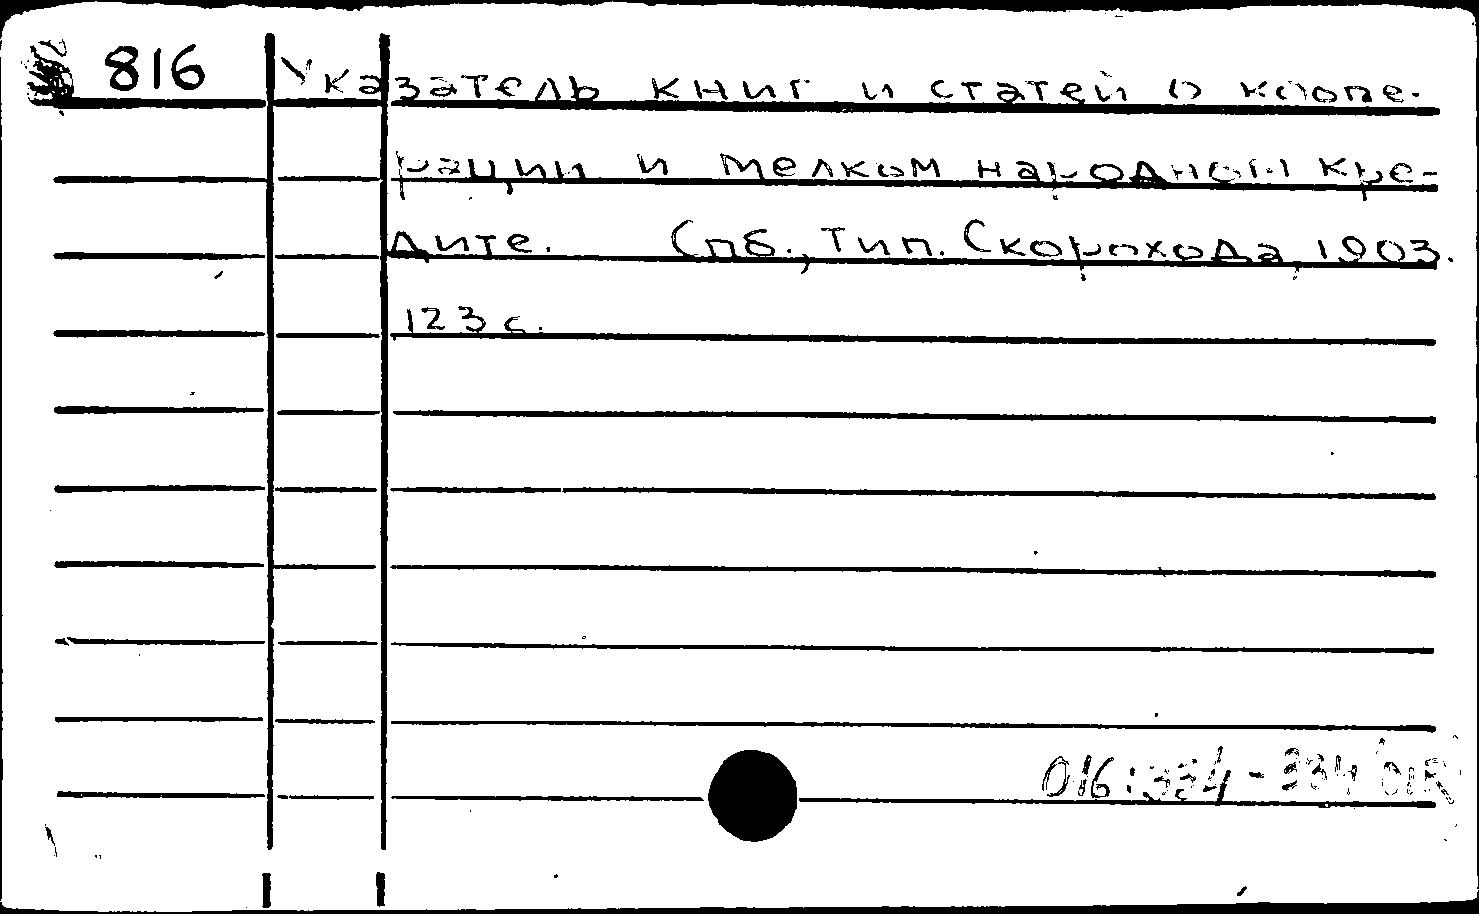 816 Указатель книг и статей о коопе-
рации и мелком народном кре-
дите. Спб., тип. Скорохода, 1903.
123 с.
016:334-334